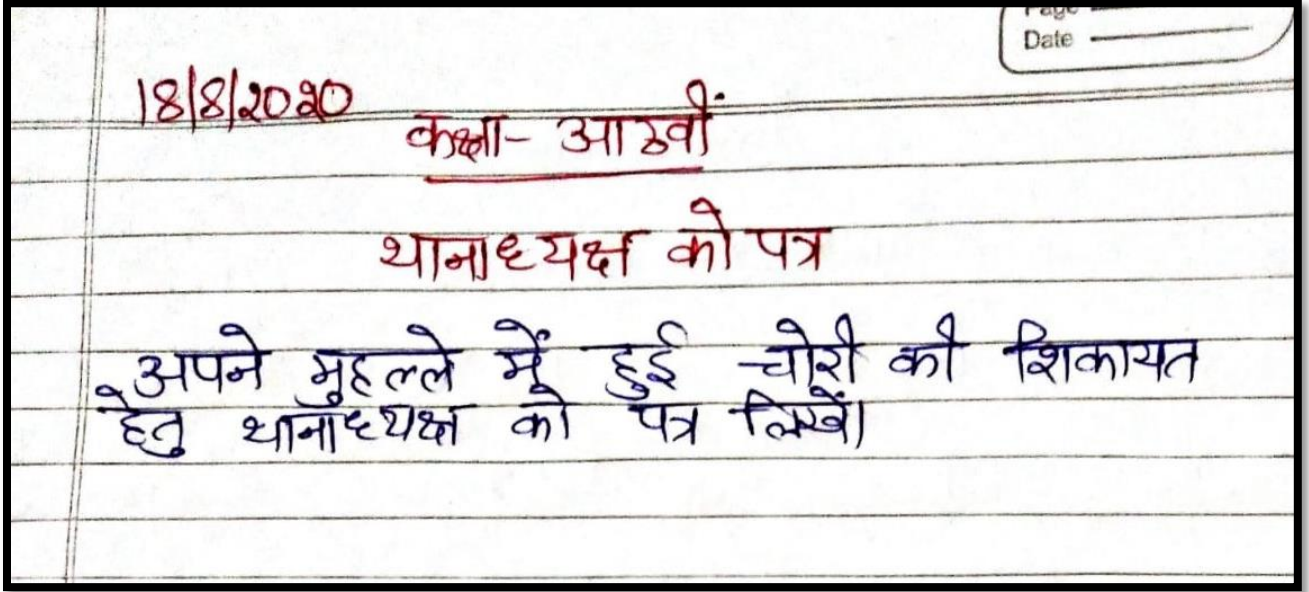 Page
Date
18/8/2020
कक्षा- आठवीं
थानाध्यक्ष को पत्र
अपने मुहल्ले में हुई चोरी की शिकायत
हेतु थानाध्यक्ष को पत्र लिखें।